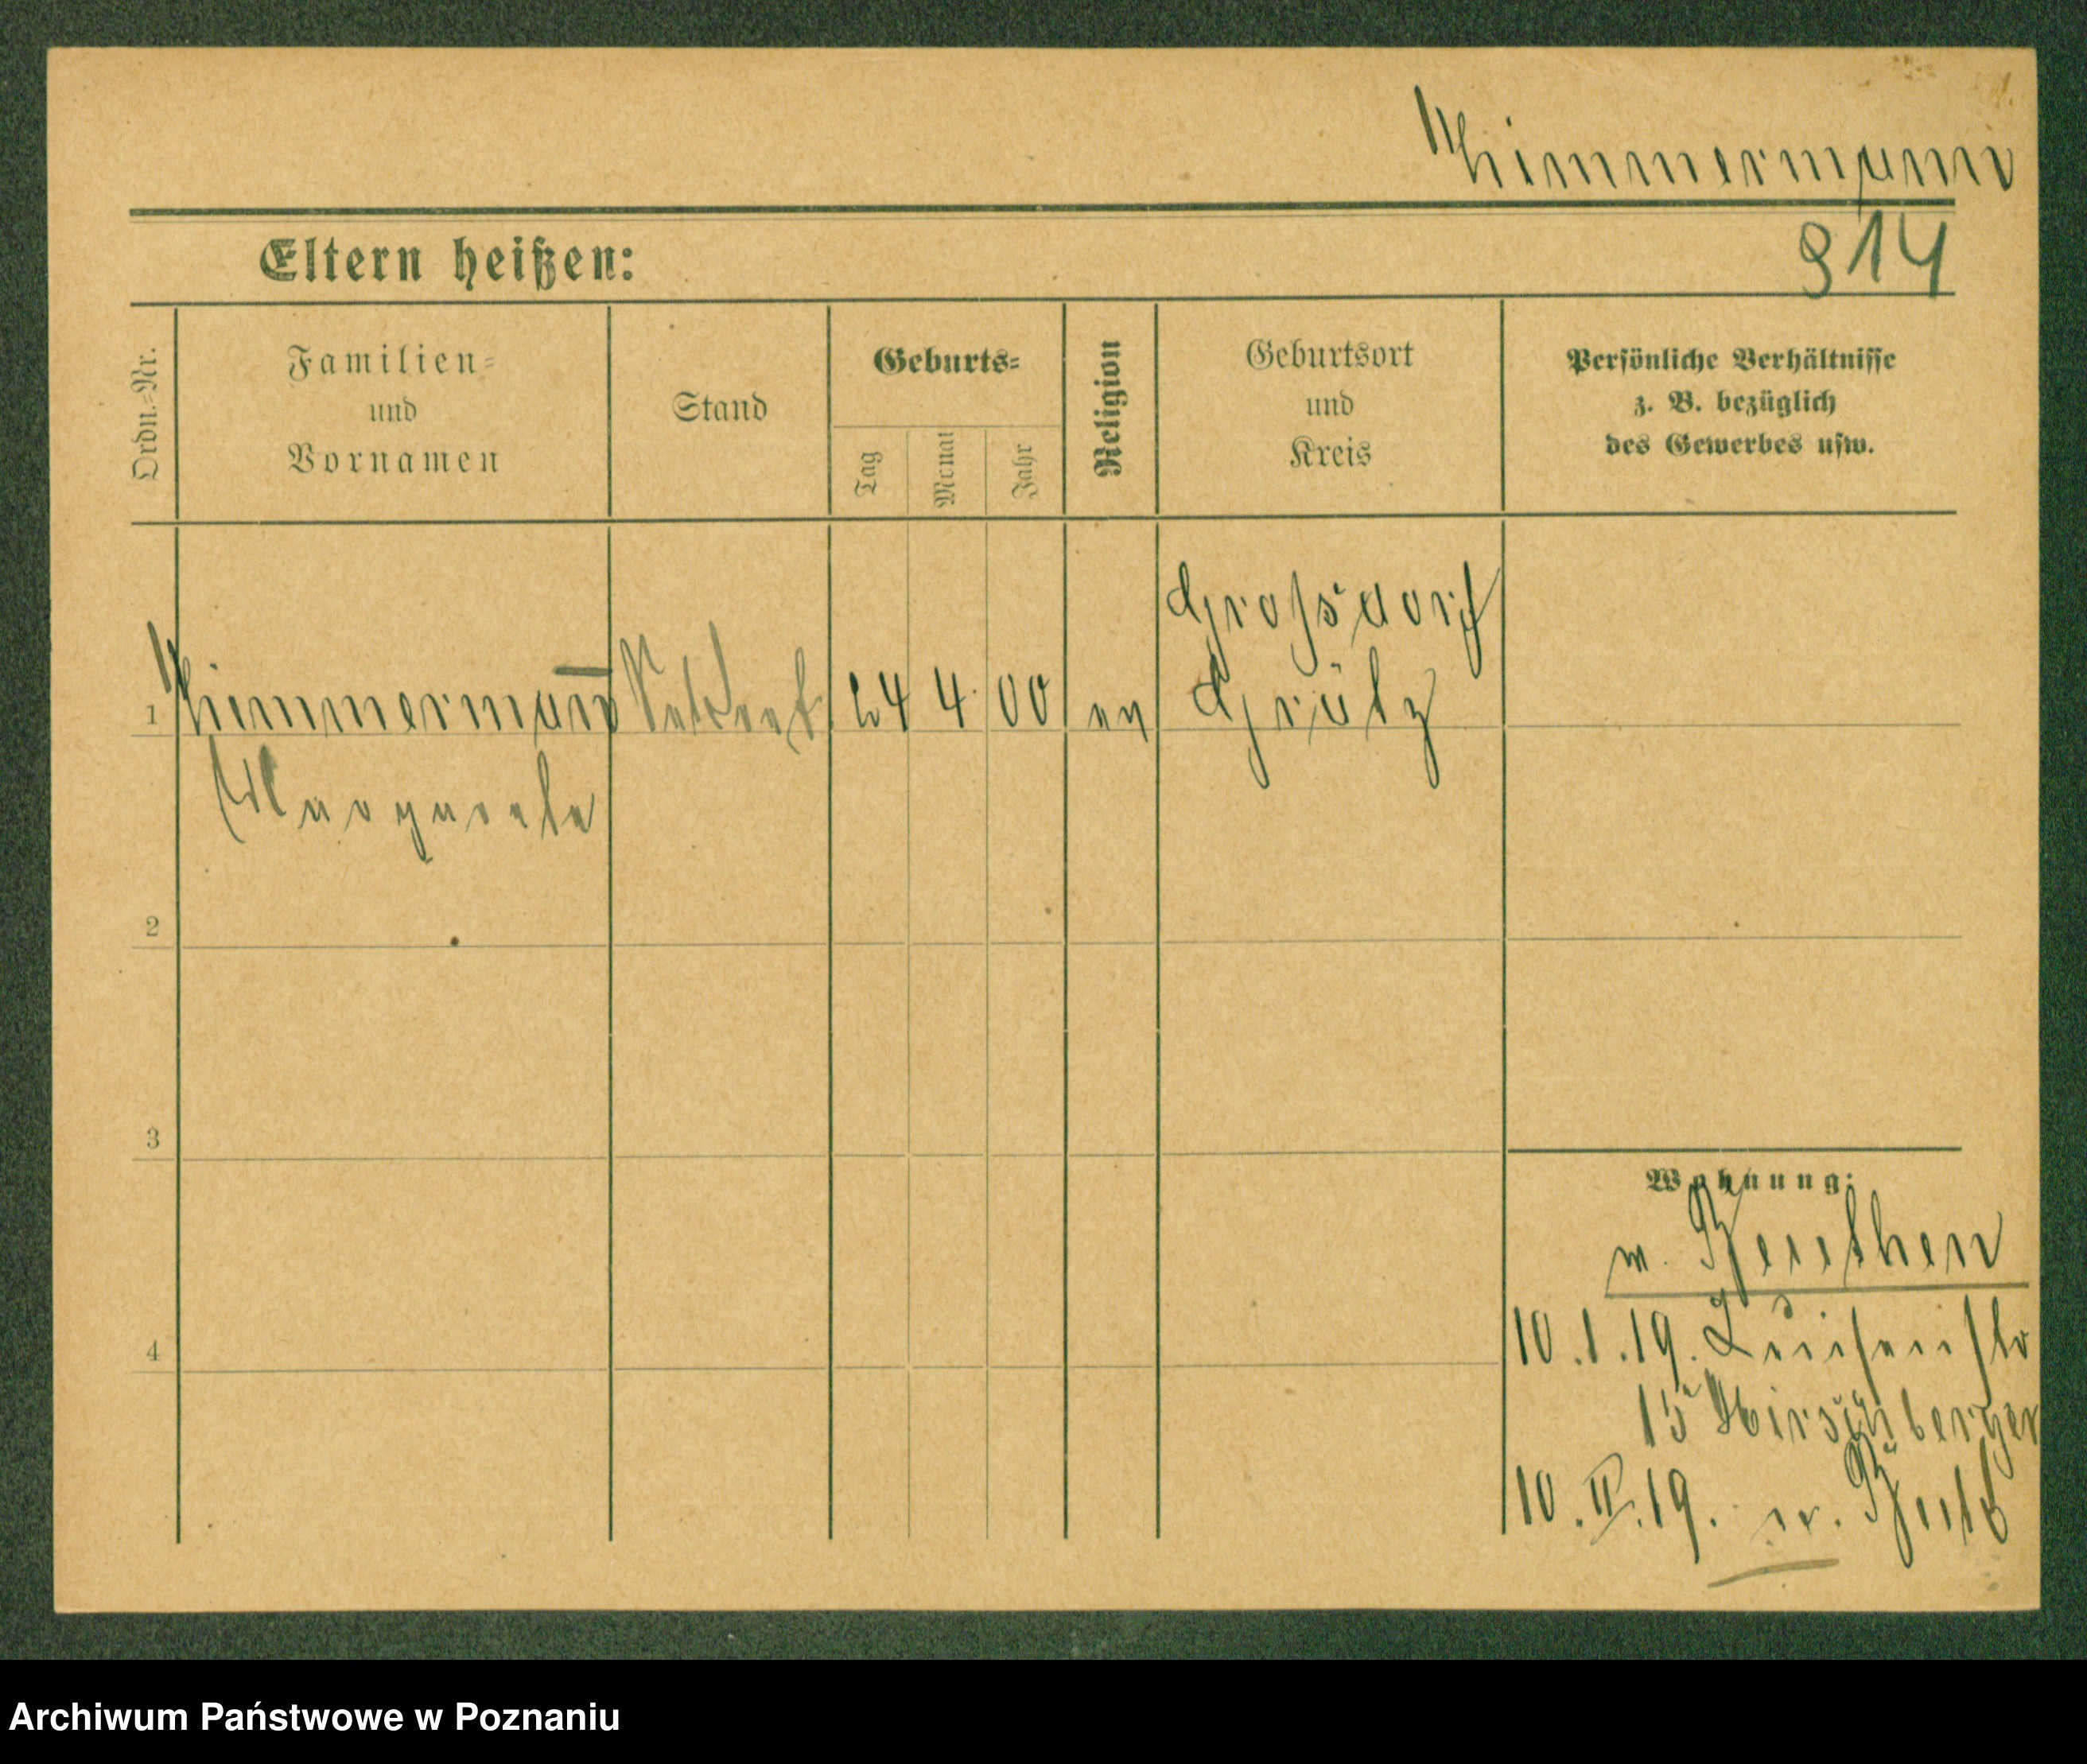 Zimmermann
914
Eltern heißen:
Ordn.-Nr.
Familien-
und
Vornamen
Stand
Geburts-
Tag
Monat
Jahr
Religion
Geburtsort
und
Kreis
Persönliche Verhältnisse
z. B. bezüglich
des Gewerbes usw.
1
Zimmermann
24 4. 00
ev
Grossdorf
Grätz
Margarete
2
3
4
Wohnung:
v. Beuthen
10.1.19. Luisenstr
15 Hirschberger
10.II.19. v.
Archiwum Państwowe w Poznaniu